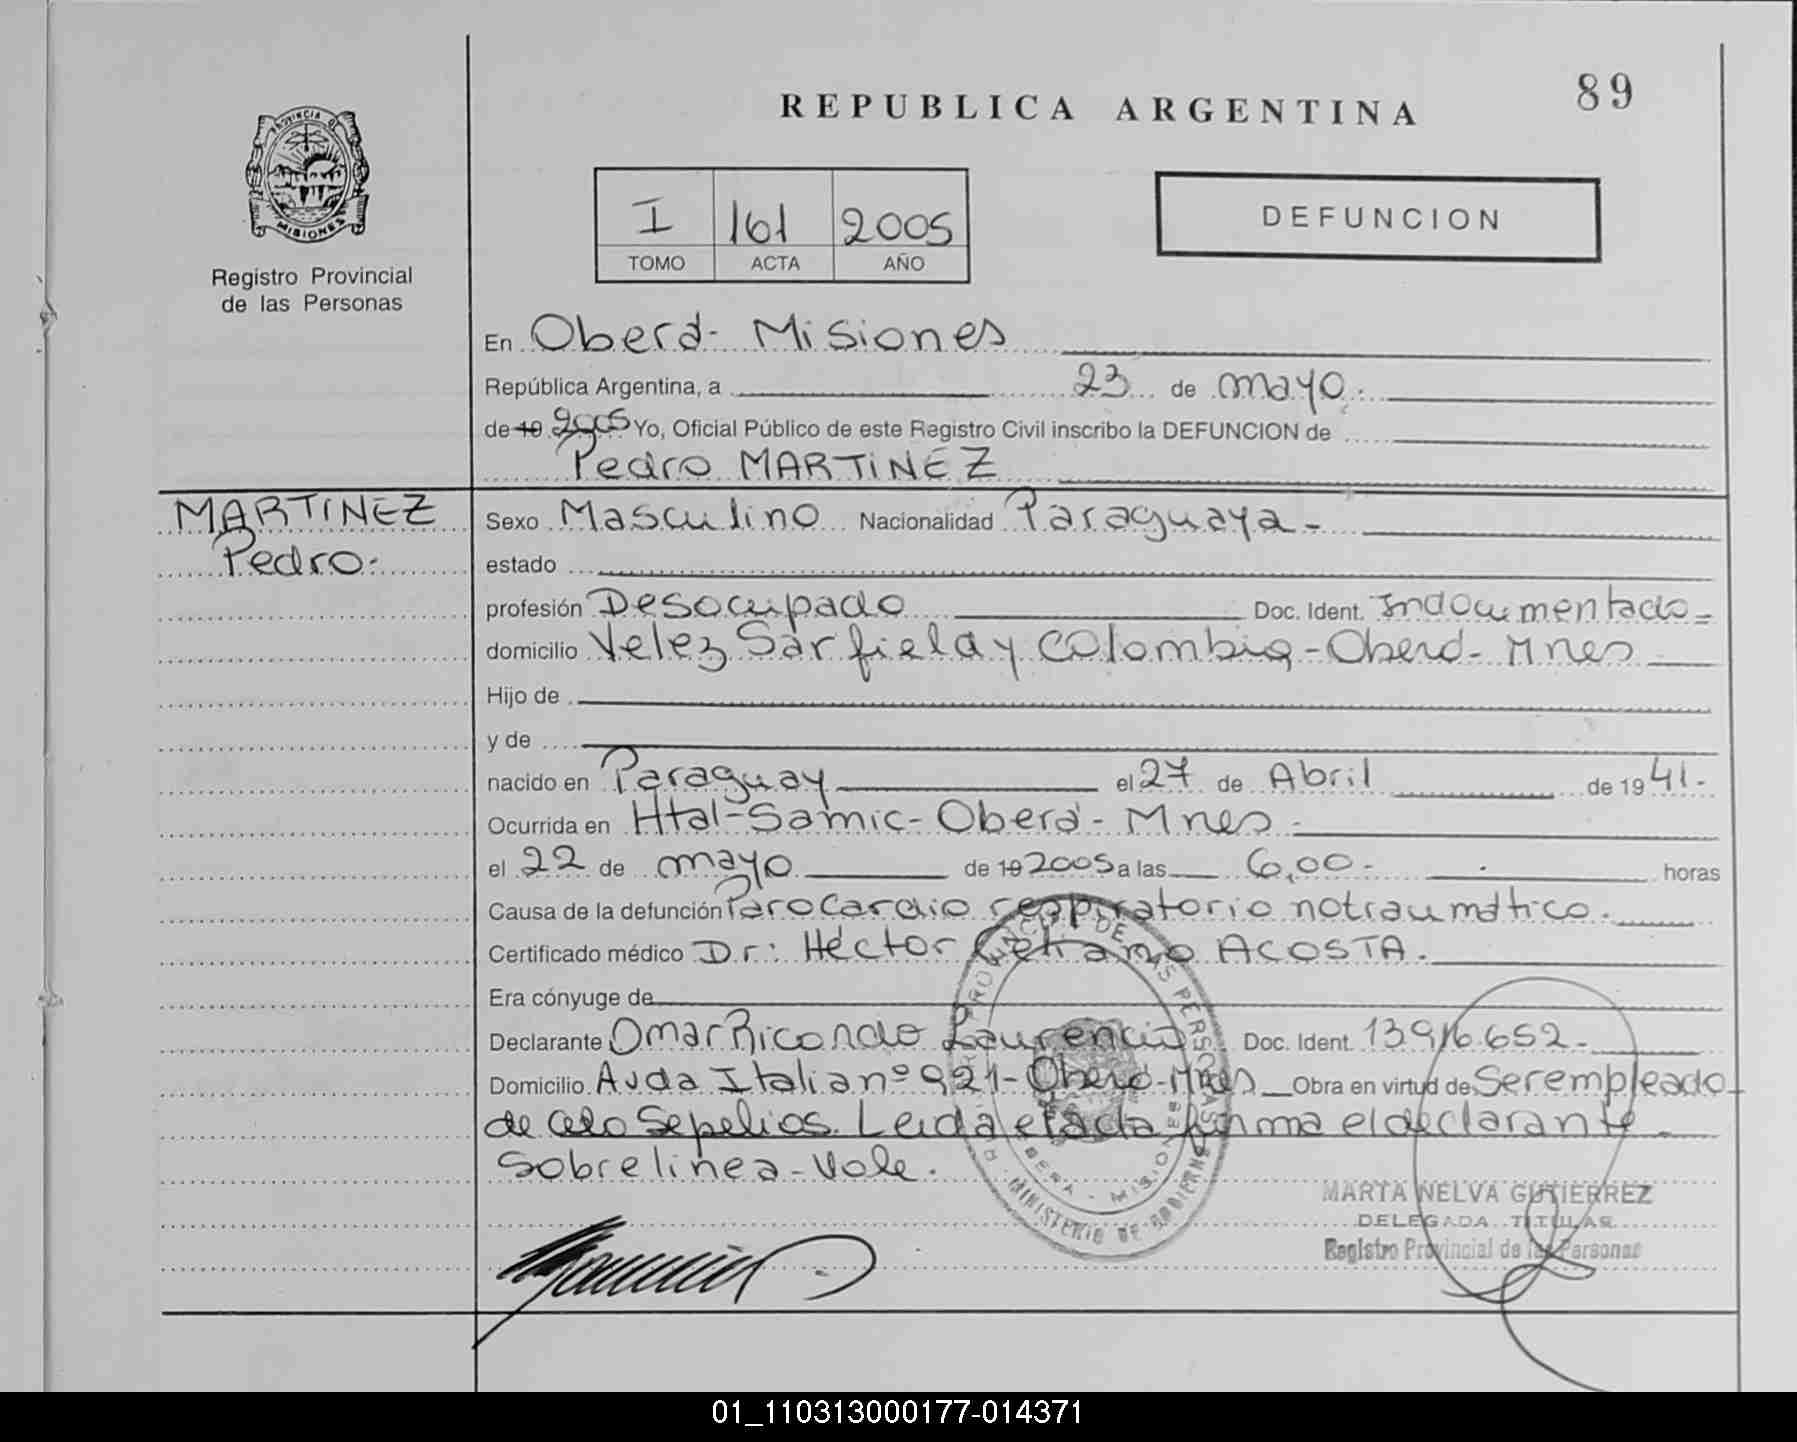 89
REPUBLICA ARGENTINA
PROVINCIA DE
MISIONES
Registro Provincial
de las Personas
I 161 2005
TOMO ACTA AÑO
DEFUNCION
En Oberá- Misiones
República Argentina, a 23 de mayo.
de 19 2005 Yo, Oficial Público de este Registro Civil inscribo la DEFUNCION de
Pedro MARTINEZ
MARTINEZ
Pedro.
Sexo Masculino Nacionalidad Paraguaya-
estado
profesión Desocupado Doc. Ident. Indocumentado-
domicilio Velez Sarfield y Colombia-Oberá-Mnes
Hijo de
y de
nacido en Paraguay el 27 de Abril de 1941.
Ocurrida en Htal-Samic-Oberá-Mnes-
el 22 de mayo de 19 2005 a las 6,00- horas
Causa de la defunción Paro Cardio respiratorio no traumático.
Certificado médico Dr: Héctor ACOSTA.
Era cónyuge de
Declarante Omar Ricardo Laurencio Doc. Ident. 13916.652-
Domicilio Avda Italia nº 921-Oberá-Mnes Obra en virtud de Ser empleado
de Sepelios. Leida el acta firma el declarante.
Sobre linea-Vale.
MARTA NELVA GUTIERREZ
DELEGADA TITULAR
Registro Provincial de las Personas
PROVINCIAL DE LAS PERSONAS
OBERA - MISIONES
MINISTERIO DE GOBIERNO
01_110313000177-014371